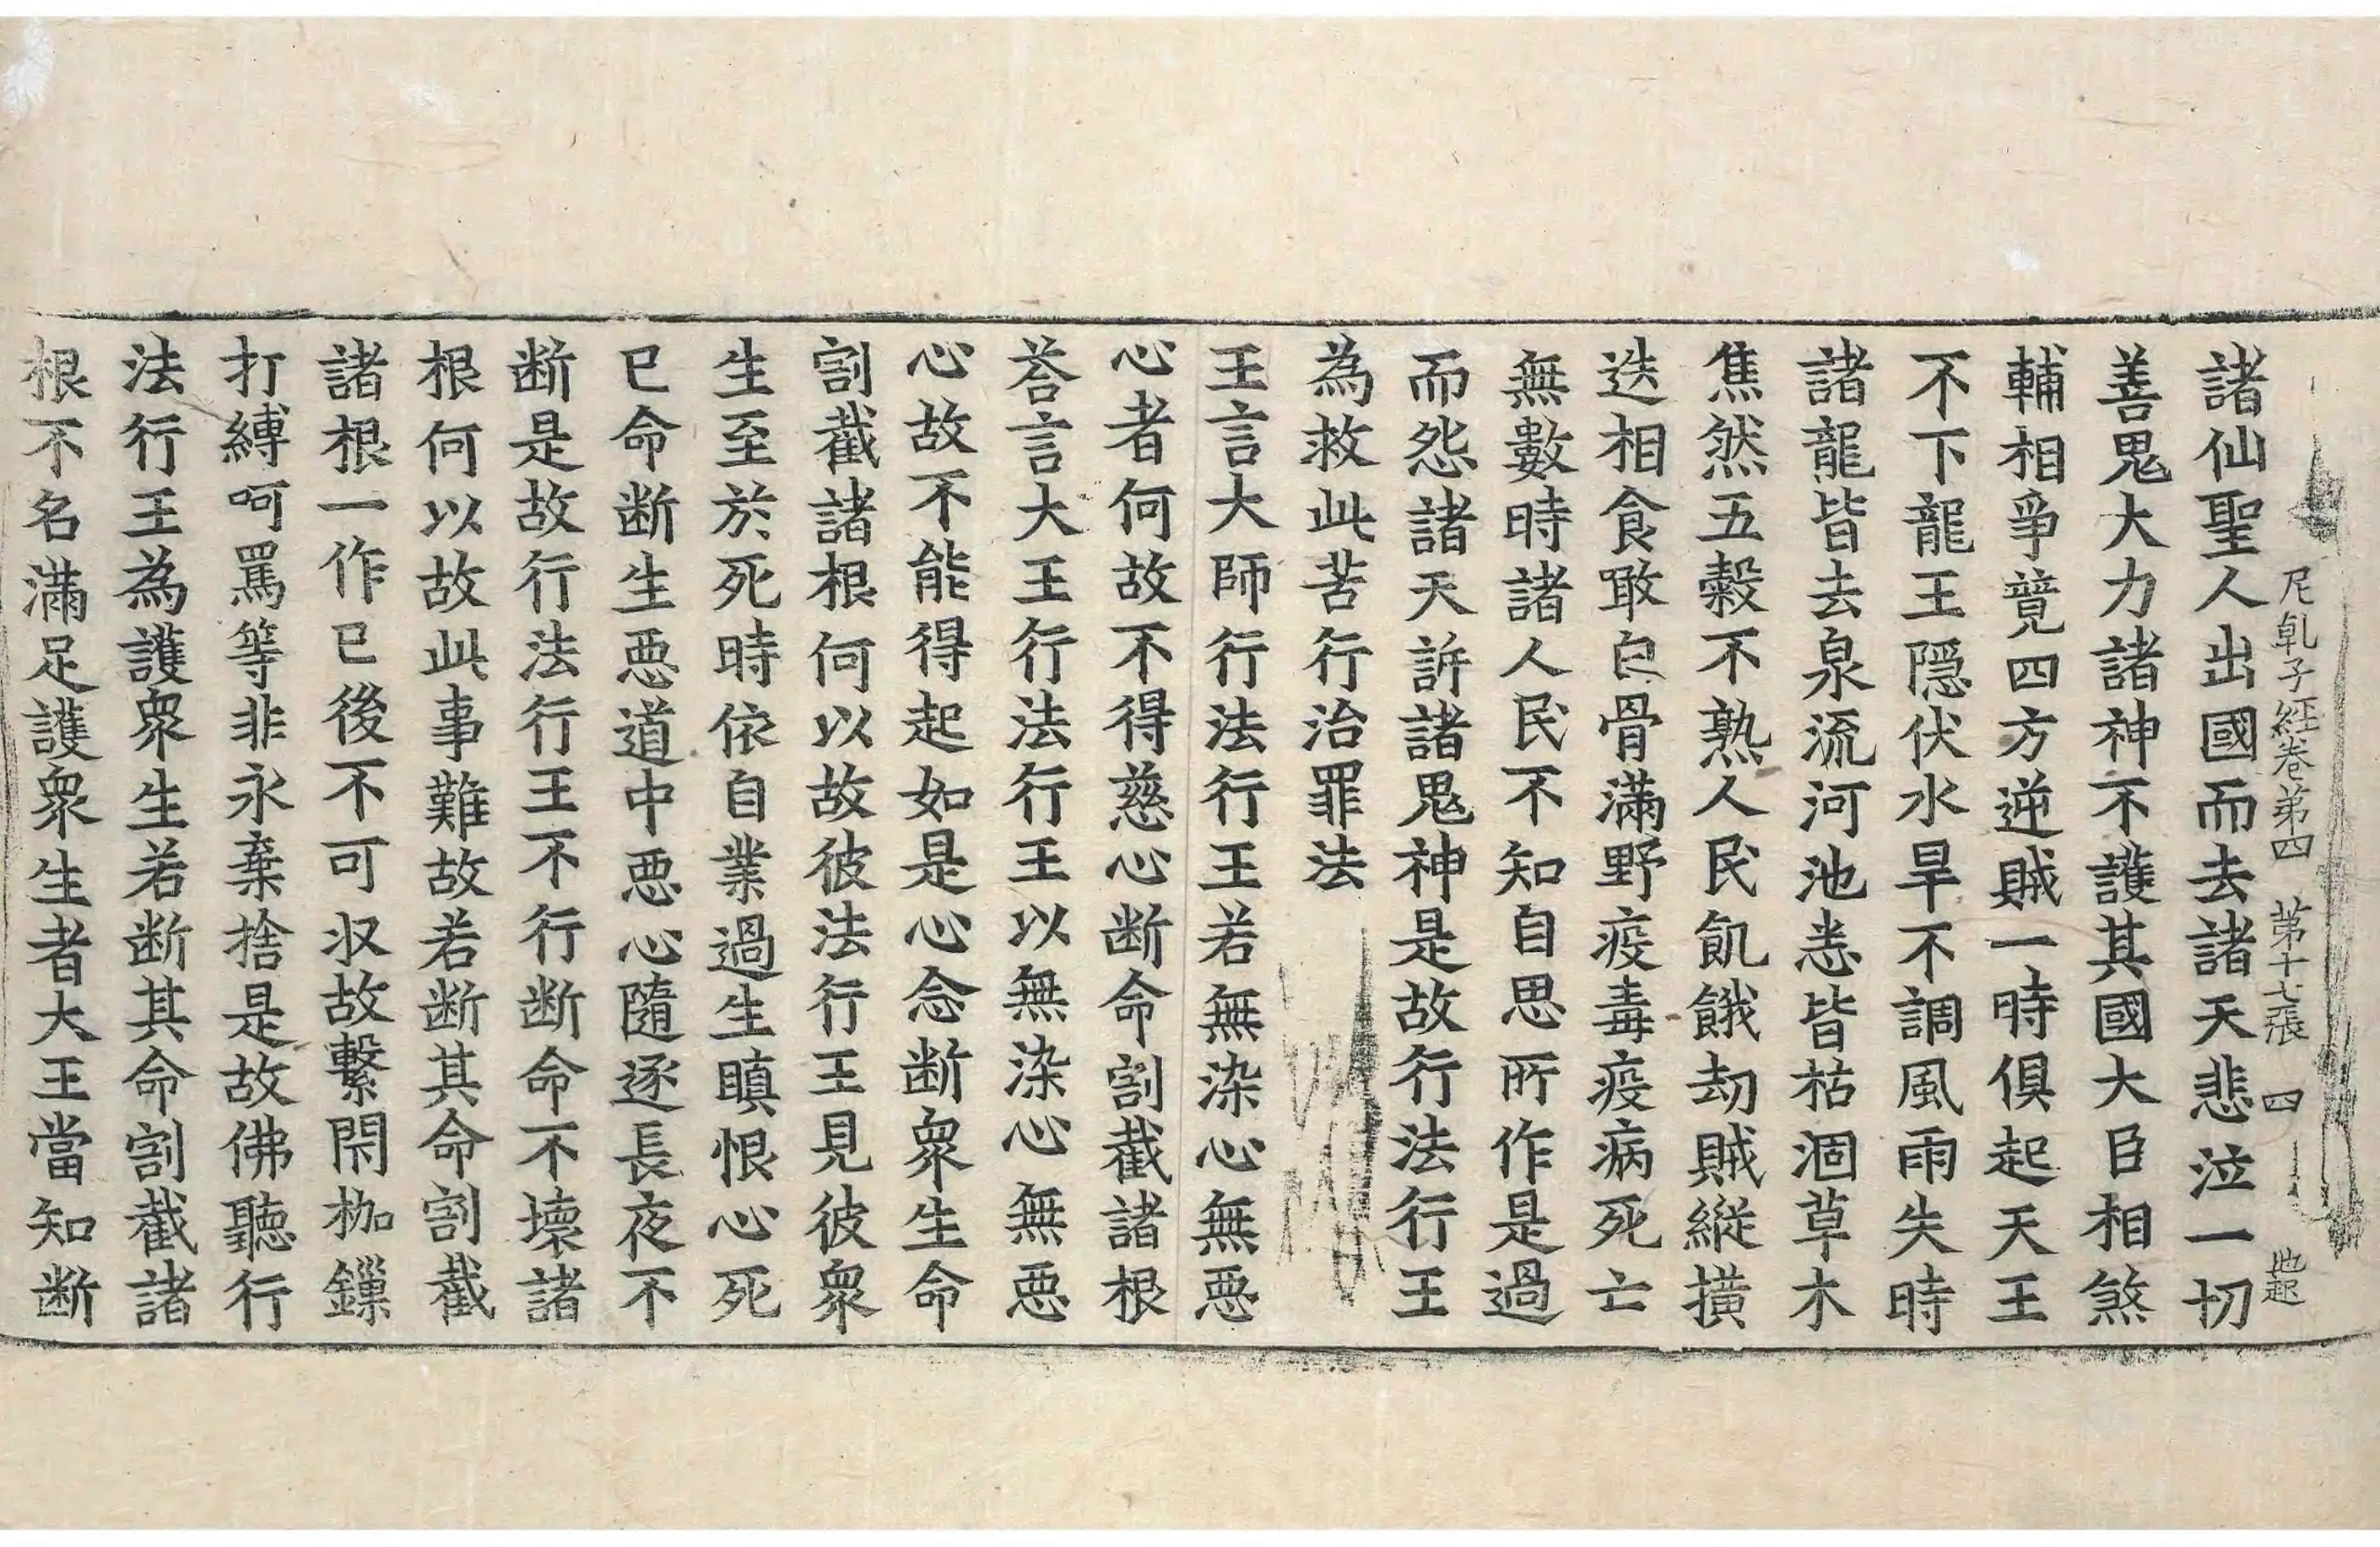 尼乹子経卷第四 第十七張 四
諸仙聖人出國而去諸天悲泣一切
善鬼大力諸神不護其國大臣相煞
輔相爭竟四方逆賊一時俱起天王
不下龍王隱伏水旱不調風雨失時
諸龍皆去泉流河池悉皆枯涸草木
焦然五穀不熟人民飢餓劫賊縱撗
迭相食噉白骨滿野疫毒疫病死亡
無數時諸人民不知自思所作是過
而怨諸天訴諸鬼神是故行法行王
為救此苦行治罪法
王言大師行法行王若無染心無惡
心者何故不得慈心断命割截諸根
荅言大王行法行王以無染心無惡
心故不能得起如是心念断衆生命
割截諸根何以故彼法行王見彼衆
生至於死時依自業過生瞋恨心死
已命断生惡道中惡心隨逐長夜不
断是故行法行王不行断命不壞諸
根何以故此事難故若断其命割截
諸根一作已後不可収故繫閉枷鏁
打縛呵罵等非永棄捨是故佛聽行
法行王為護衆生若断其命割截諸
根不名滿足護衆生者大王當知断